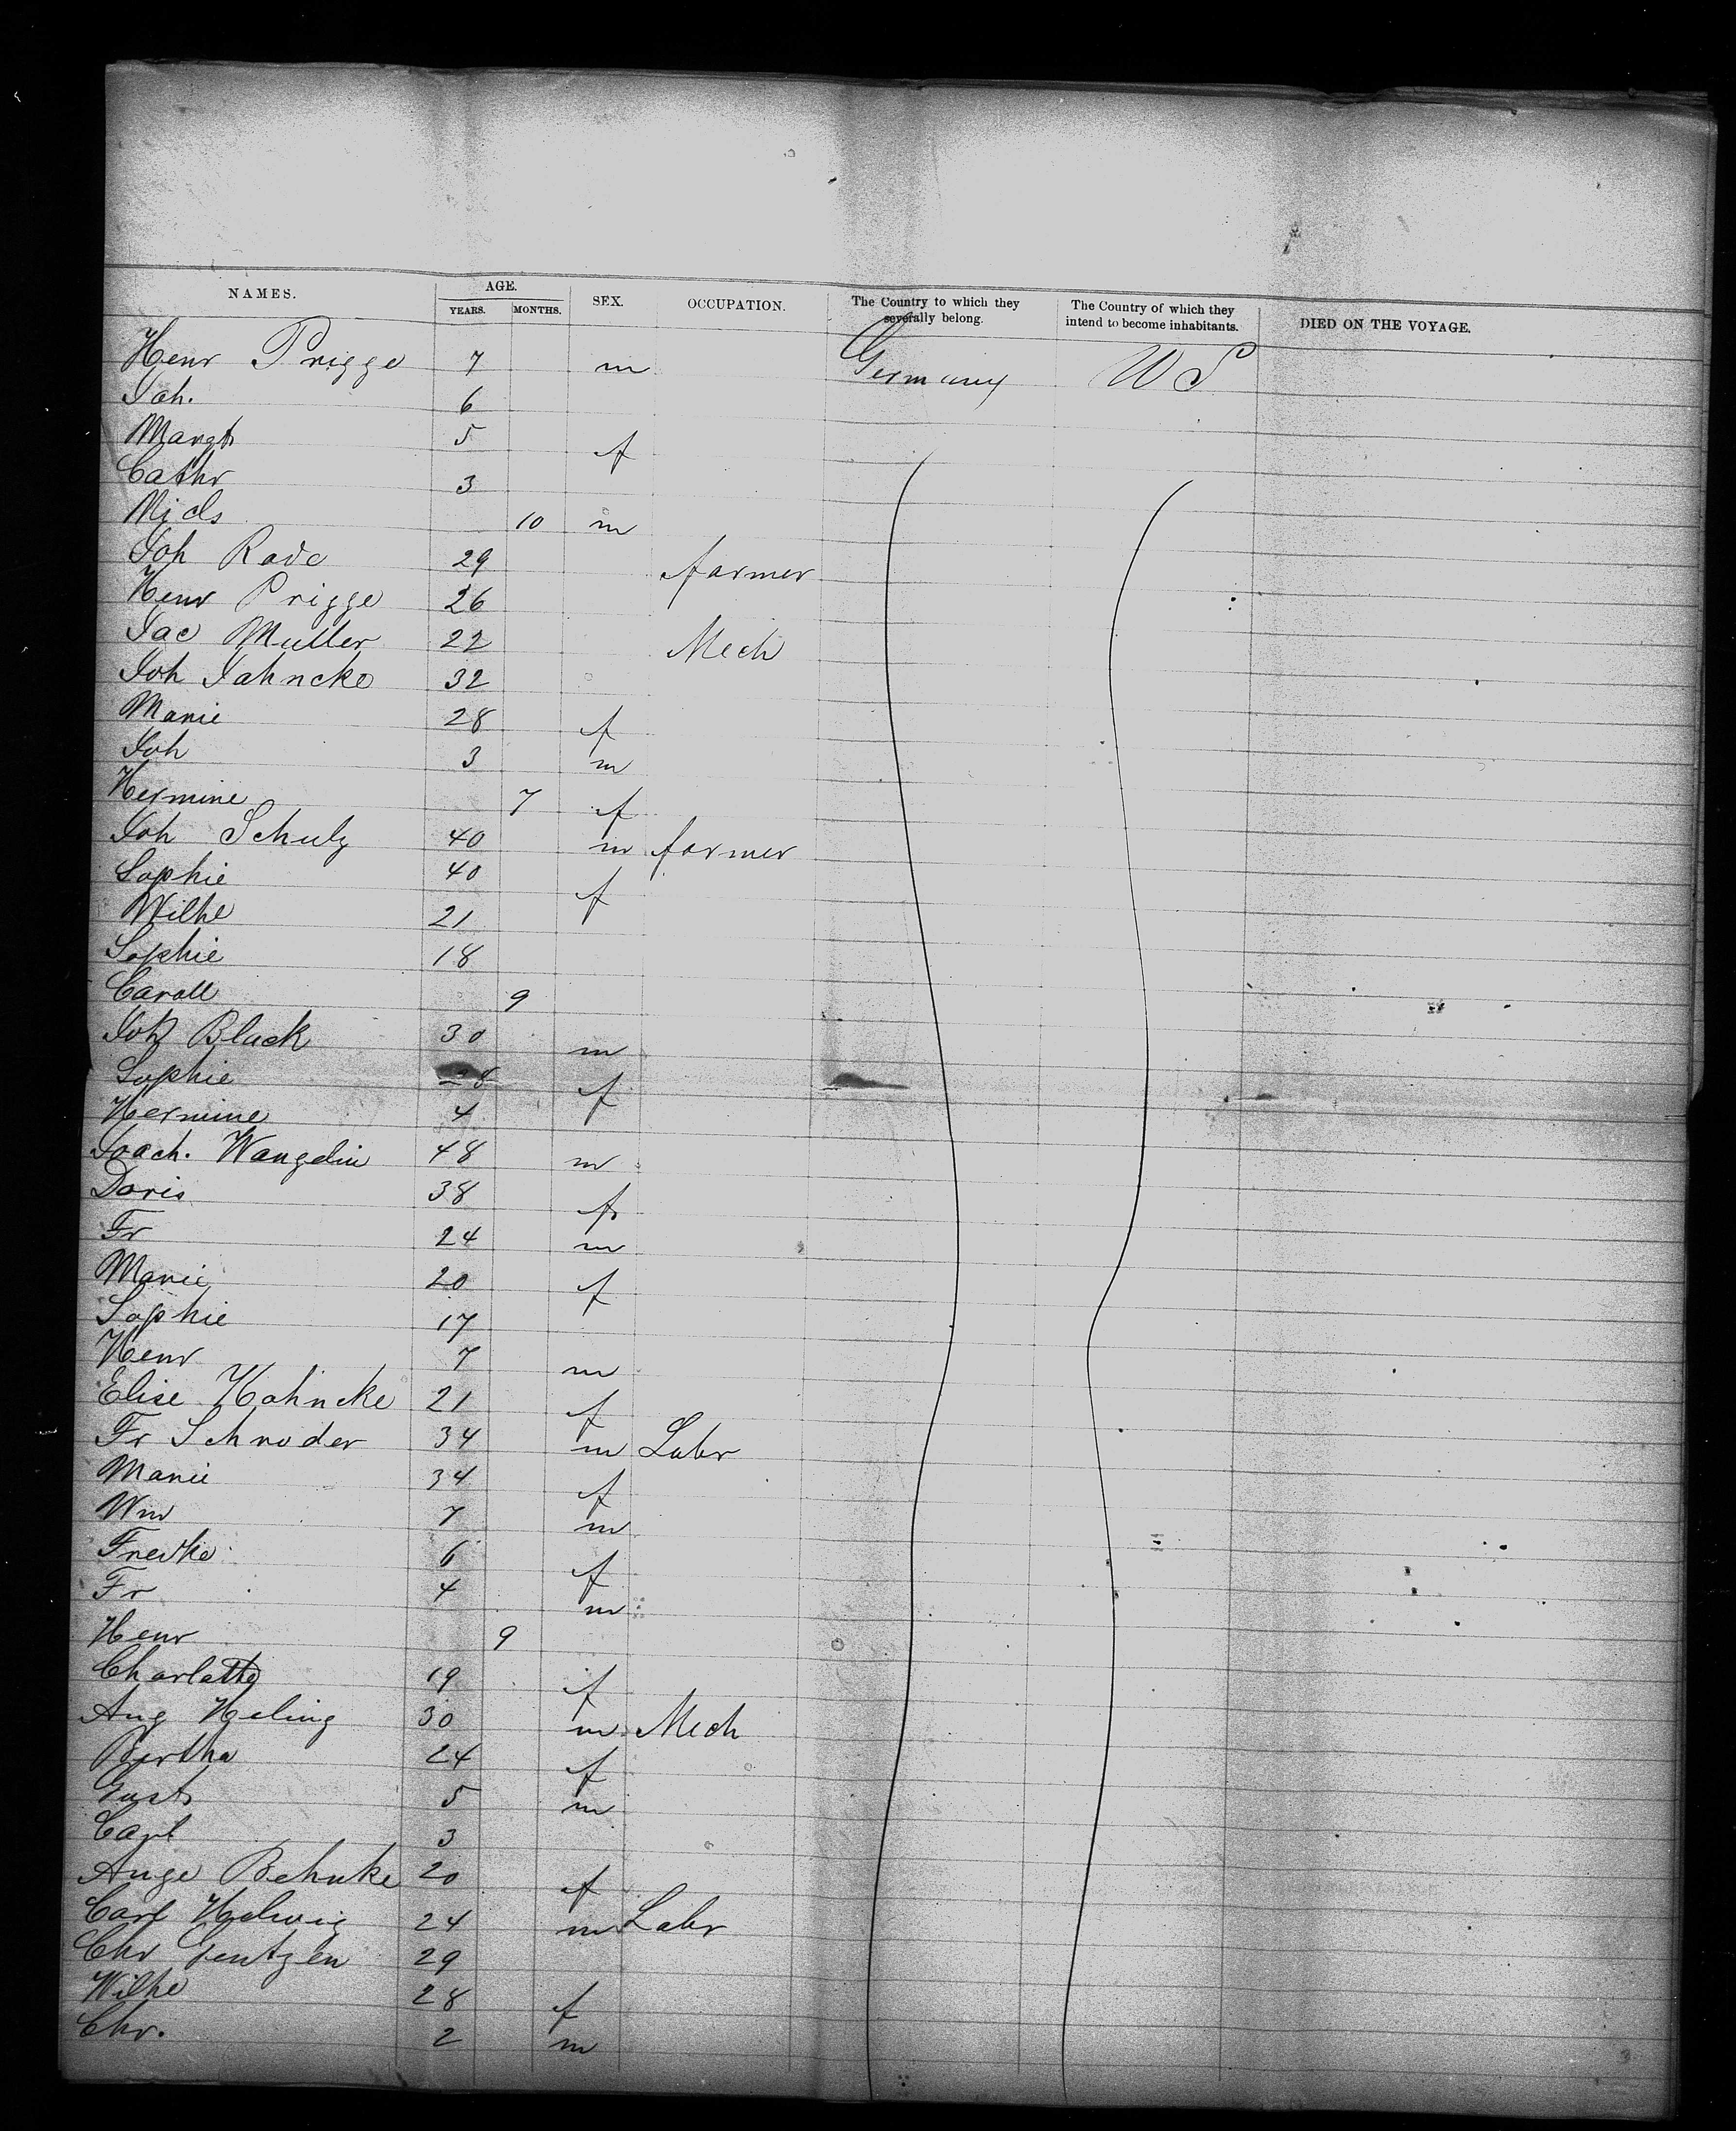 NAMES. AGE. YEARS. MONTHS. SEX. OCCUPATION. The Country to which they severally belong. The Country of which they intend to become inhabitants. DIED ON THE VOYAGE.
Henr Prigge 7 m Germany US
Joh. 6
Margt 5 f
Cathr 3
Nicls 10 m
Joh Rade 29 farmer
Henr Prigge 26
Jac Muller 22 Mech
Joh Jahncke 32
Marie 28 f
Joh 3 m
Hermine 7 f
Joh Schulz 40 m farmer
Sophie 40 f
Wilhe 21
Sophie 18
Caroll 9
Joh Black 30 m
Sophie 28 f
Hermine 4
Joach. Wangelin 48 m
Doris 38 f
Fr 24 m
Marie 20 f
Sophie 17
Henr 7 m
Elise Hahncke 21 f
Fr Schroder 34 m Labr
Marie 34 f
Wm 7 m
Fredke 6 f
Fr 4 m
Henr 9
Charlotte 19 f
Aug Heling 30 m Mech
Bertha 24 f
Gust 5 m
Carl 3
Auge Behnke 20 f
Carl Helwig 24 m Labr
Chr Gentzen 29
Wilhe 28 f
Chr. 2 m